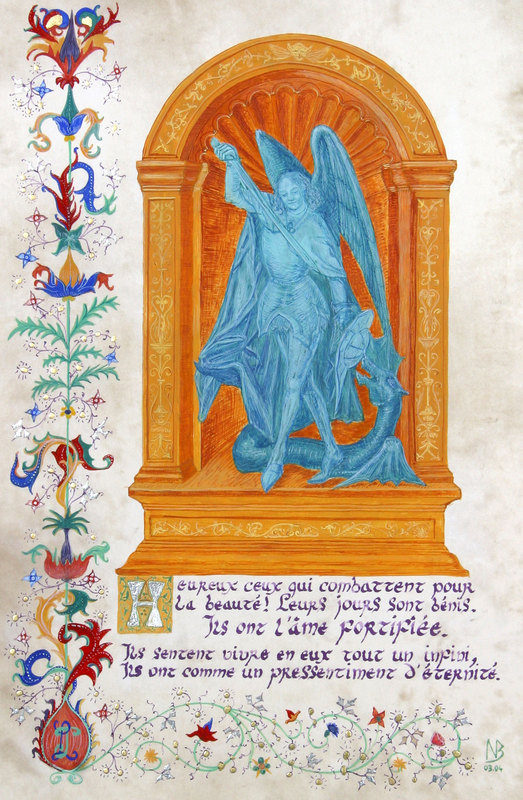 Heureux ceux qui combattent pour
la beauté! Leurs jours sont bénis.
Ils ont l'âme fortifiée.
Ils sentent vivre en eux tout un infini,
Ils ont comme un pressentiment d'éternité.
L
NB
03.04